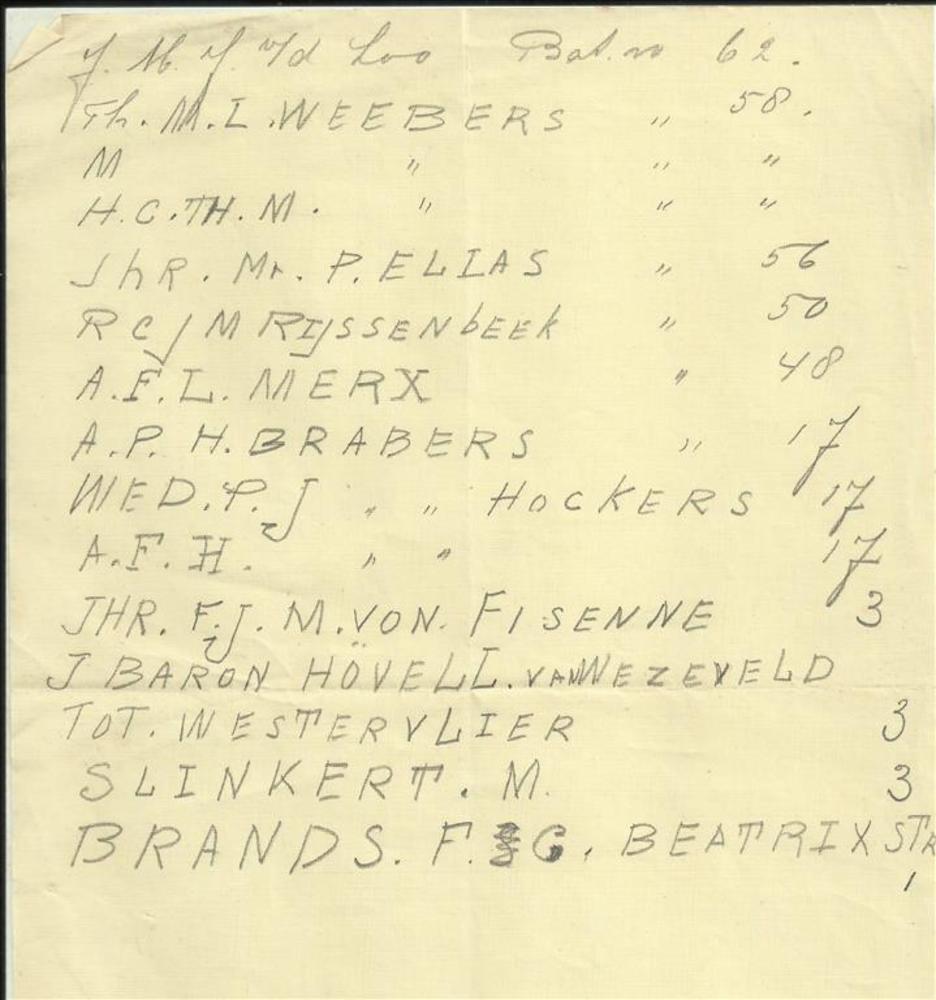 J. M. J. v/d Loo Bat. no 62.
Th. M. L. WEEBERS " 58.
M " " "
H.C.TH.M. " " "
JhR. Mr. P. ELIAS " 56
R C J M RIJSSENbEEk " 50
A.F.L. MERX " 48
A.P.H. BRABERS " 17
WED. P.J " " HOCKERS 17
A.F.H. " " 17
JHR. F.J. M. VON. FISENNE 3
J BARON HÖVELL. VAN WEZEVELD
TOT. WESTERVLIER 3
SLINKERT. M. 3
BRANDS. F. G. BEATRIX STR
1